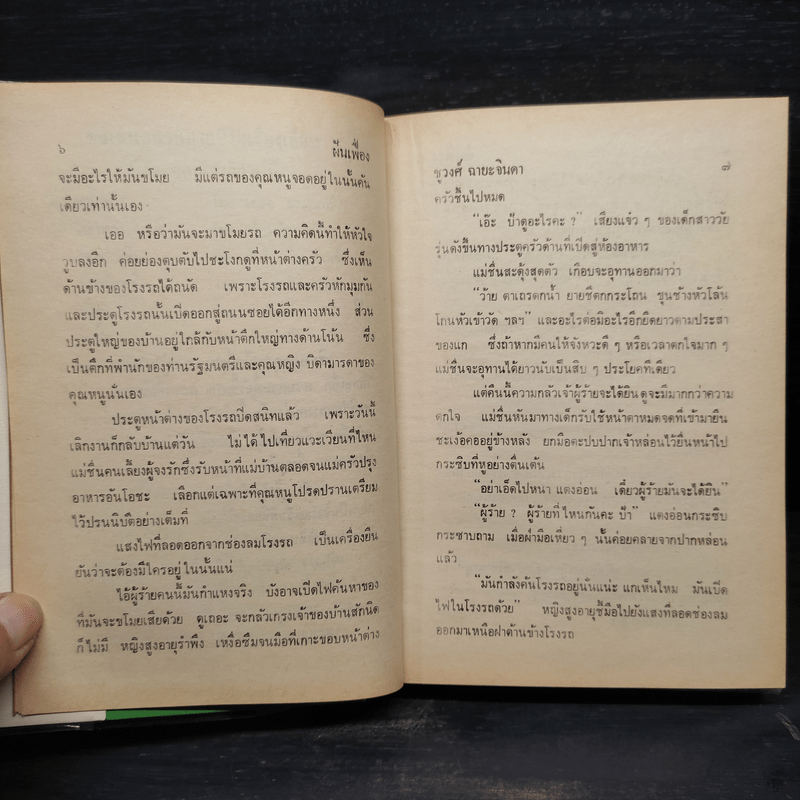 ๖ ฝันเฟื่อง
จะมีอะไรให้มันขโมย มีแต่รถของคุณหนูจอดอยู่ในนั้นคัน
เดียวเท่านั้นเอง
เออ หรือว่ามันจะมาขโมยรถ ความคิดนี้ทำให้หัวใจ
วูบลงอีก ค่อยย่องตุบตับไปชะโงกดูที่หน้าต่างครัว ซึ่งเห็น
ด้านข้างของโรงรถได้ถนัด เพราะโรงรถและครัวหักมุมกัน
และประตูโรงรถนั้นเปิดออกสู่ถนนซอยได้อีกทางหนึ่ง ส่วน
ประตูใหญ่ของบ้านอยู่ใกล้กับหน้าตึกใหญ่ทางด้านโน้น ซึ่ง
เป็นตึกที่พำนักของท่านรัฐมนตรีและคุณหญิง บิดามารดาของ
คุณหนูนั่นเอง
ประตูหน้าต่างของโรงรถปิดสนิทแล้ว เพราะวันนี้
เลิกงานก็กลับบ้านแต่วัน ไม่ได้ไปเที่ยวแวะเวียนที่ไหน
แม่ชื่นคนเลี้ยงผู้จงรักซึ่งรับหน้าที่แม่บ้านตลอดจนแม่ครัวปรุง
อาหารอันโอชะ เลือกแต่เฉพาะที่คุณหนูโปรดปรานเตรียม
ไว้ปรนนิบัติอย่างเต็มที่
แสงไฟที่ลอดออกจากช่องลมโรงรถ เป็นเครื่องยืน
ยันว่าจะต้องมีใครอยู่ในนั้นแน่
ไอ้ผู้ร้ายคนนี้มันกำแหงจริง บังอาจเปิดไฟค้นหาของ
ที่มันจะขโมยเสียด้วย ดูเถอะ จะกลัวเกรงเจ้าของบ้านสักนิด
ก็ไม่มี หญิงสูงอายุรำพึง เหงื่อซึมจนมือที่เกาะขอบหน้าต่าง
ชูวงศ์ ฉายะจินดา ๗
ครัวชื้นไปหมด
"เอ๊ะ ป้าดูอะไรคะ ?" เสียงแจ๋ว ๆ ของเด็กสาววัย
รุ่นดังขึ้นทางประตูครัวด้านที่เปิดสู่ห้องอาหาร
แม่ชื่นสะดุ้งสุดตัว เกือบจะอุทานออกมาว่า
"ว้าย ตาเถรตกน้ำ ยายชีตกกระโถน ขุนช้างหัวโล้น
โกนหัวเข้าวัด ฯลฯ" และอะไรต่อมิอะไรอีกยืดยาวตามประสา
ของแก ซึ่งถ้าหากมีคนให้จังหวะดี ๆ หรือเวลาตกใจมาก ๆ
แม่ชื่นจะอุทานได้ยาวนับเป็นสิบ ๆ ประโยคทีเดียว
แต่คืนนี้ความกลัวเจ้าผู้ร้ายจะได้ยินดูจะมีมากกว่าความ
ตกใจ แม่ชื่นหันมาทางเด็กรับใช้หน้าตาหมดจดที่เข้ามายืน
ชะเง้อคออยู่ข้างหลัง ยกมือตะปบปากเจ้าหล่อนไว้ยื่นหน้าไป
กระซิบที่หูอย่างตื่นเต้น
"อย่าเอ็ดไปหนา แตงอ่อน เดี๋ยวผู้ร้ายมันจะได้ยิน"
"ผู้ร้าย ? ผู้ร้ายที่ไหนกันคะ ป้า" แตงอ่อนกระซิบ
กระซาบถาม เมื่อฝ่ามือเหี่ยว ๆ นั้นค่อยคลายจากปากหล่อน
แล้ว
"มันกำลังค้นโรงรถอยู่นั่นแน่ะ แกเห็นไหม มันเปิด
ไฟในโรงรถด้วย" หญิงสูงอายุชี้มือไปยังแสงที่ลอดช่องลม
ออกมาเหนือฝาด้านข้างโรงรถ